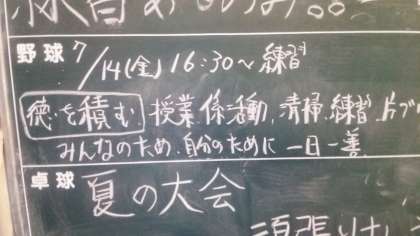 野球 7/14(金) 16:30~練習
徳を積む 授業、係活動、清掃、練習、
みんなのため、自分のために 一日一善
卓球 夏の大会